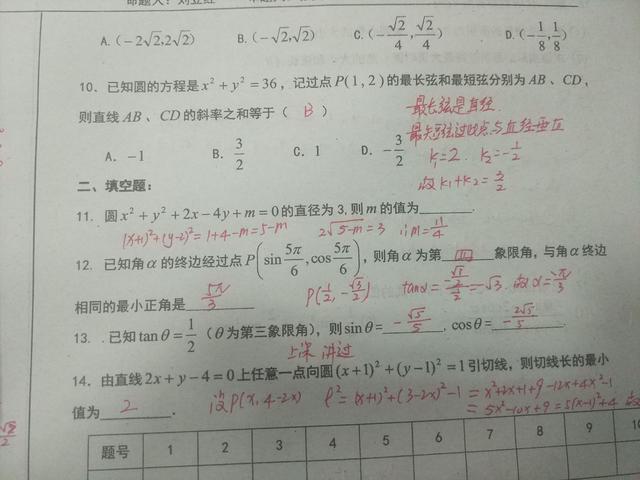 A.(−2√2,2√2) B.(−√2,√2) C.(−√2/4,√2/4) D.(−1/8,1/8)
10、已知圆的方程是 x²+y²=36，记过点 P(1,2) 的最长弦和最短弦分别为 AB、CD，
则直线 AB、CD 的斜率之和等于（ B ）
最长弦是直径.
最短弦过P点与直径垂直
A. −1 B. 3/2 C. 1 D. −3/2
k₁=2. k₂=−1/2
故 k₁+k₂=3/2
二、填空题：
11. 圆 x²+y²+2x−4y+m=0 的直径为 3,则 m 的值为
(x+1)²+(y-2)²=1+4-m=5-m 2√5-m=3 ∴m=11/4
12. 已知角 α 的终边经过点 P(sin 5π/6, cos 5π/6)，则角 α 为第 四 象限角，与角 α 终边
相同的最小正角是 5π/3
P(1/2,-√3/2) tanα= =-√3. 故α=
13. 已知 tan θ=1/2（θ 为第三象限角），则 sin θ= -√5/5 , cos θ= -2√5/5
上课讲过
14. 由直线 2x+y−4=0 上任意一点向圆 (x+1)²+(y−1)²=1 引切线，则切线长的最小
值为 2 .
设P(x,4-2x) ℓ²=(x+1)²+(3-2x)²-1=x²+2x+1+9-12x+4x²-1
=5x²-10x+9=5(x-1)²+4 故
题号 1 2 3 4 5 6 7 8 9 10